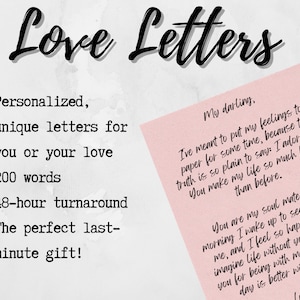 Love Letters
Personalized,
unique letters for
you or your love
200 words
48-hour turnaround
The perfect last-
minute gift!
My darling,
I've meant to put my feelings to
paper for some time, because
truth is so plain to say: I ador
You make my life so much
than before.
You are my soul mate
morning I wake up to see
me, and I feel so hap
imagine life without
you for being with me
day is better